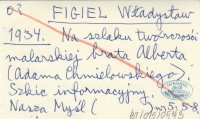 03 FIGIEL Władysław
1934. Na szlaku twórczości
malarskiej brata Alberta
(Adama Chmielowskiego).
Szkic informacyjny.
Nasza Myśl (
nr 5: 5-8.